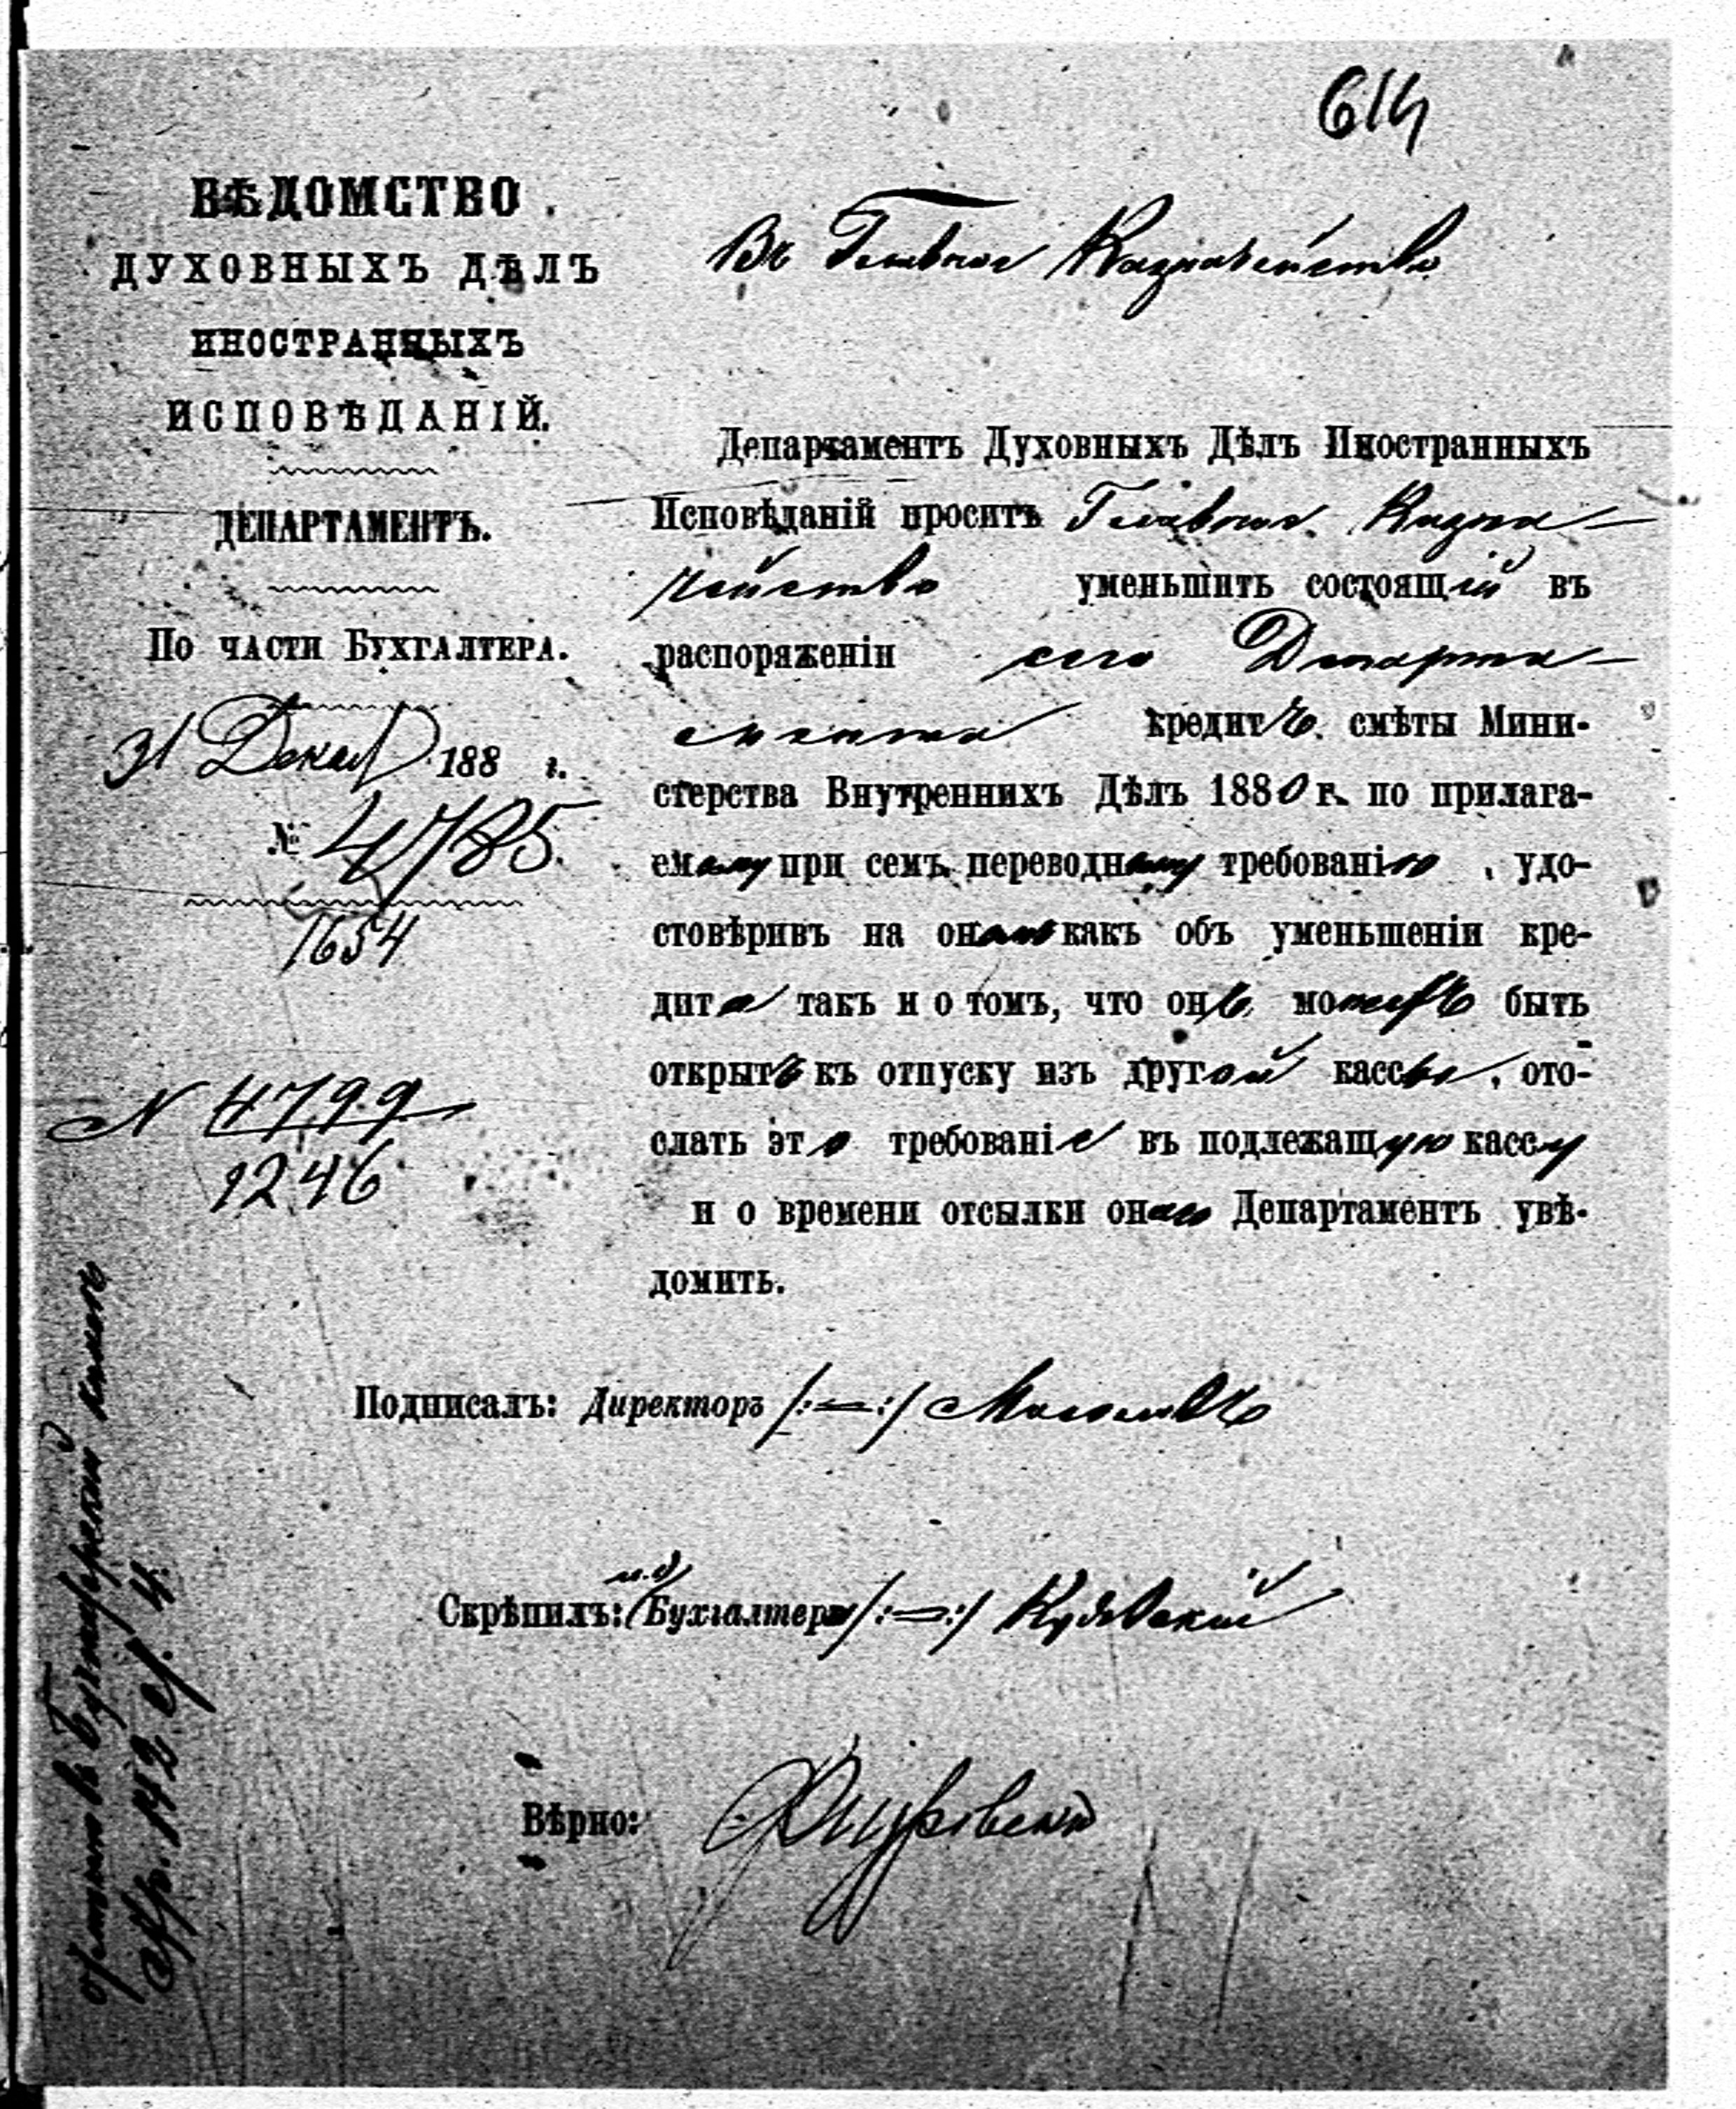 614
ВѢДОМСТВО
ДУХОВНЫХЪ ДѢЛЪ
ИНОСТРАННЫХЪ
ИСПОВѢДАНІЙ.
ДЕПАРТАМЕНТЪ.
По части Бухгалтера.
31 Декаб 188 г.
№ 4785
1654
N 4799
1246
Въ Главное Казначейство
Департаментъ Духовныхъ Дѣлъ Иностранныхъ
Исповѣданій проситъ Главное Казна-
чейство уменьшить состоящій въ
распоряженіи сего Департа-
мента кредитъ смѣты Мини-
стерства Внутреннихъ Дѣлъ 1880 г. по прилага-
емому при семъ переводному требованію, удо-
стовѣривъ на ономъ какъ объ уменьшеніи кре-
дита такъ и о томъ, что онъ можетъ быть
открытъ къ отпуску изъ другой кассы, ото-
слать это требованіе въ подлежащую кассу
и о времени отсылки онаго Департаментъ увѣ-
домить.
Подписалъ: Директоръ /:—:/ Мосоловъ
Скрѣпилъ: и.д. Бухгалтера /:—:/
Вѣрно:
въ Бухгалтерской книгѣ
стр. 142 ст. 4